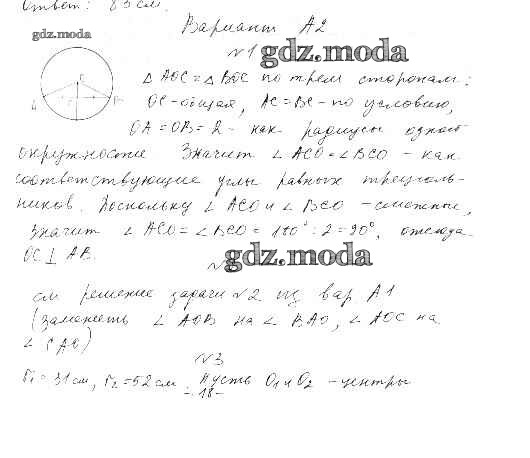 Ответ: 83 см.
Вариант А2
gdz.moda
№1 gdz.moda
△ AOC = △ BOC по трем сторонам:
OC - общая, AC = BC - по условию,
OA = OB = 2 - как радиусы одной
окружности. Значит ∠ ACO = ∠ BCO - как
соответствующие углы равных треуголь-
ников. Поскольку ∠ ACO и ∠ BCO - смежные,
значит ∠ ACO = ∠ BCO = 180° : 2 = 90°, отсюда
OC ⊥ AB.
№ gdz.moda
см решение задачи №2 из вар А1
(заменить ∠ AOB на ∠ BAO, ∠ AOC на
∠ CAO)
№3
r₁ = 31 см, r₂ = 52 см. Пусть O₁ и O₂ - центры
- 18 -